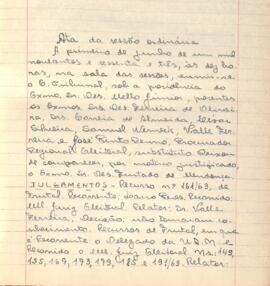 Ata da sessão ordinária
A primeiro de junho de um mil
novecentos e sessenta e três, às dez ho-
ras, na sala das sessões, reuniu-se
o E. Tribunal, sob a presidência do
Exmo. Sr. Des. Mello Júnior, presentes
os Exmos. Srs. Des. Ferreira de Olivei-
ra, Drs. Garcia de Almeida,
Silveira, Samuel Werneck, Valle Fer-
reira e José Pinto Renno, Procurador
Regional Eleitoral, substituto. Deixou
de comparecer, por motivo justificado
o Exmo. Sr. Des. Furtado de Mendonça.
JULGAMENTOS - Recurso nº 161/63, de
Frutal. Recorrente: Recorrido:
MM. Juiz Eleitoral. Relator: Dr. Valle
Ferreira. Decisão: não tomaram co-
nhecimento. Recursos de Frutal, em que
é Recorrente o Delegado da U.D.N. e
Recorrido o MM. Juiz Eleitoral Nos. 149,
155, 167, 173, 179, 185 e 191/63. Relator: